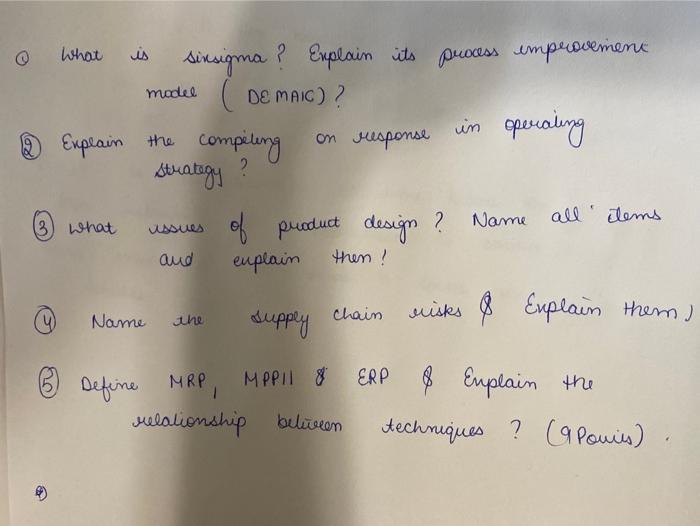 ① What is sixsigma? Explain its process improvement
model ( DEMAIC)?
② Explain the competing on response in operating
strategy?
③ What issues of product design? Name all items
and explain them!
④ Name the supply chain risks & Explain them)
⑤ Define MRP, MPPII & ERP & Explain the
relationship between techniques? (9 Points).